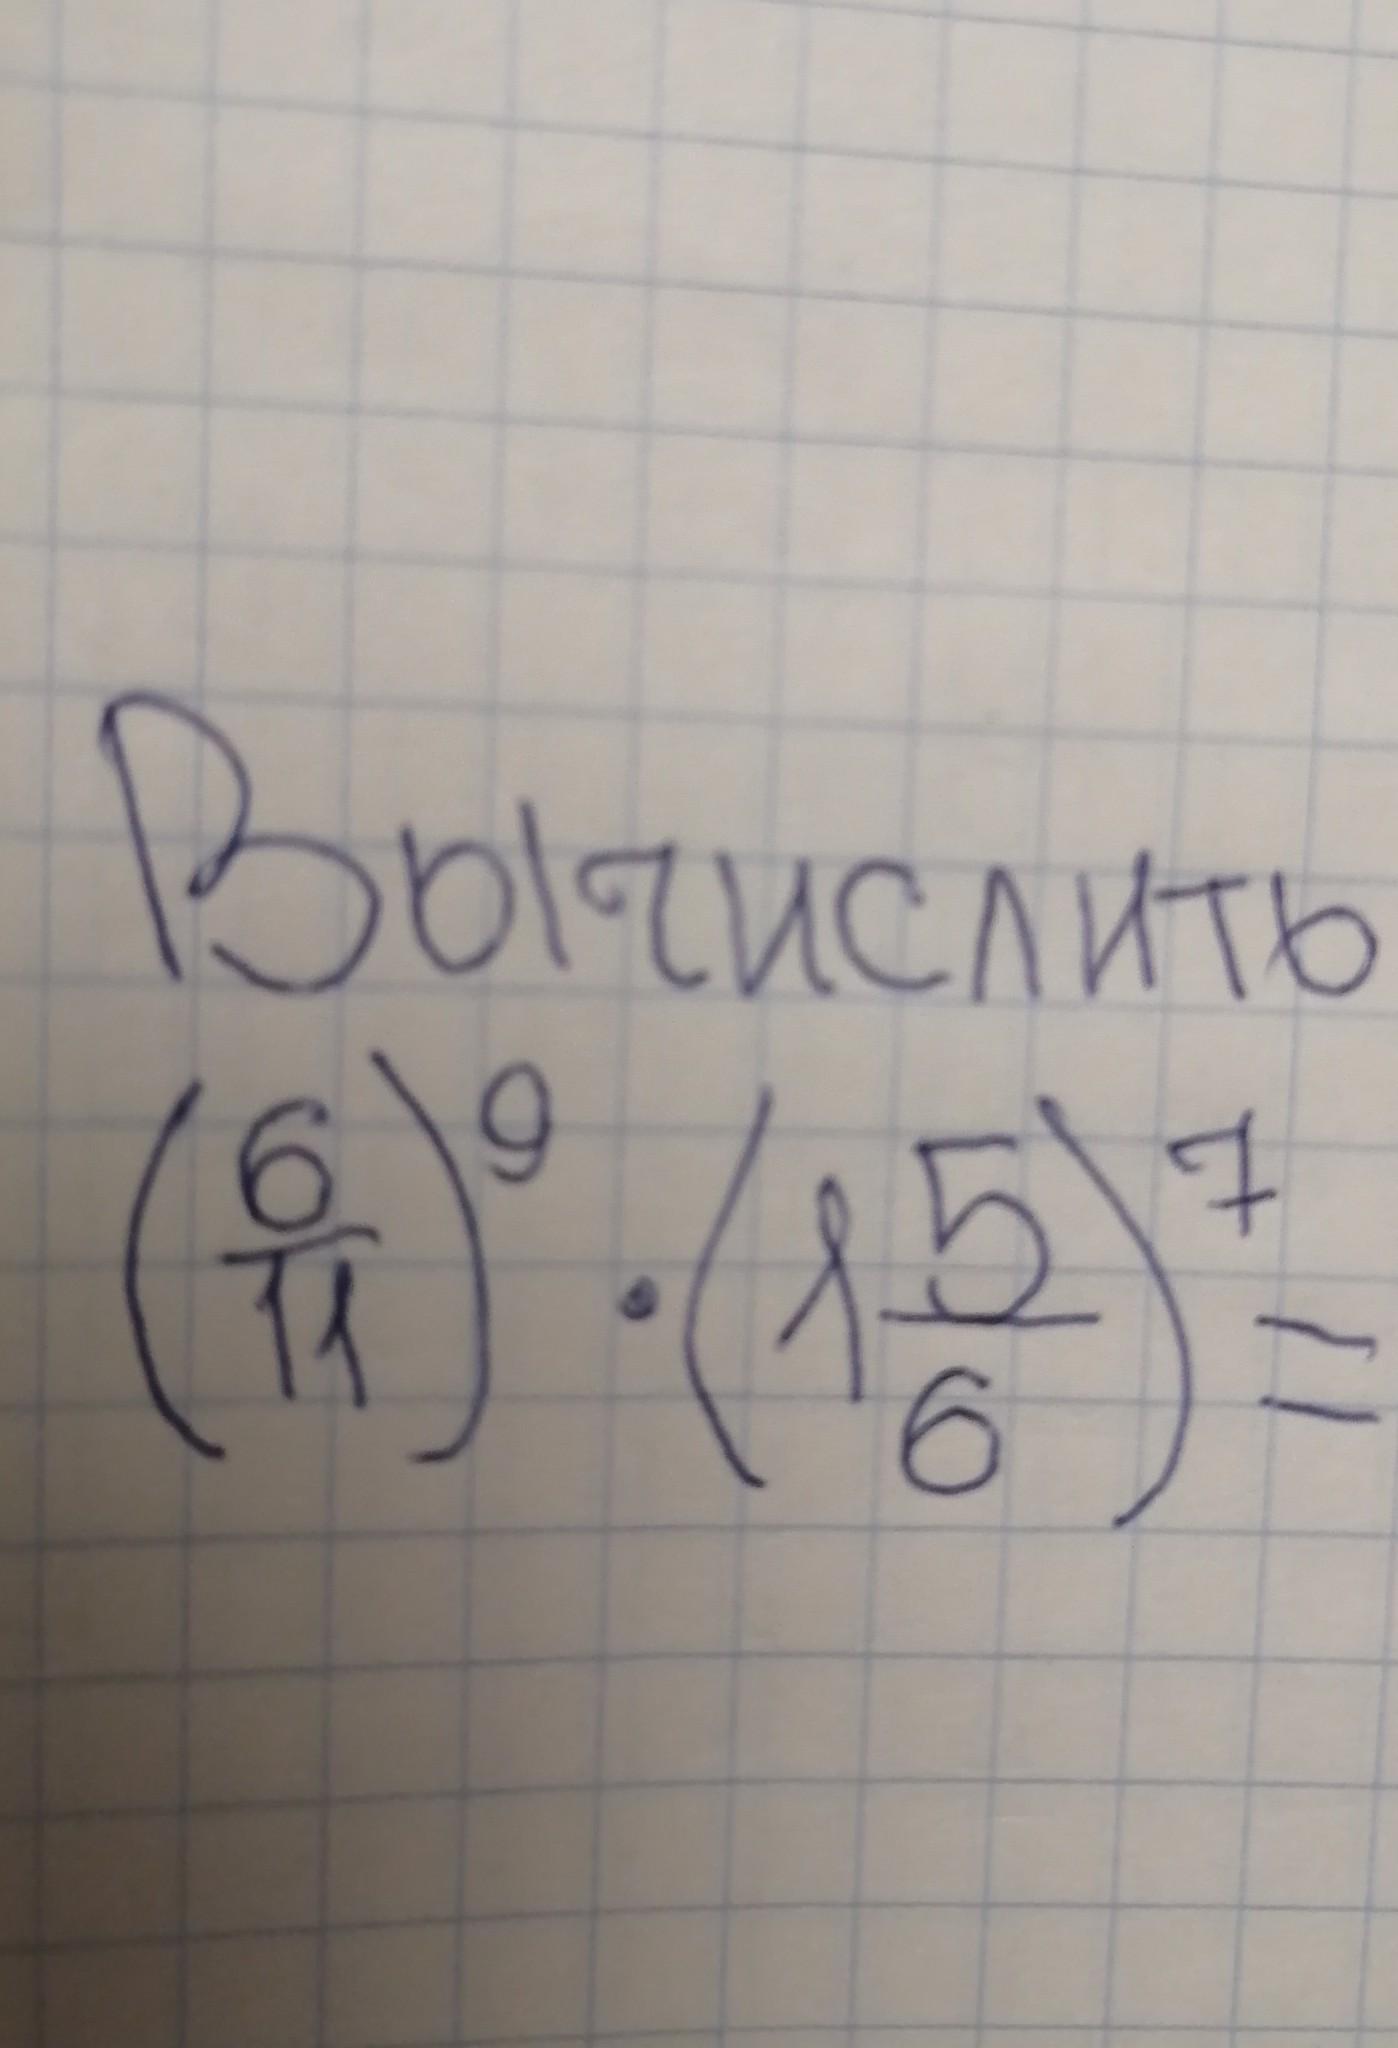 Вычислить
(6/11)^9 · (1 5/6)^7 =